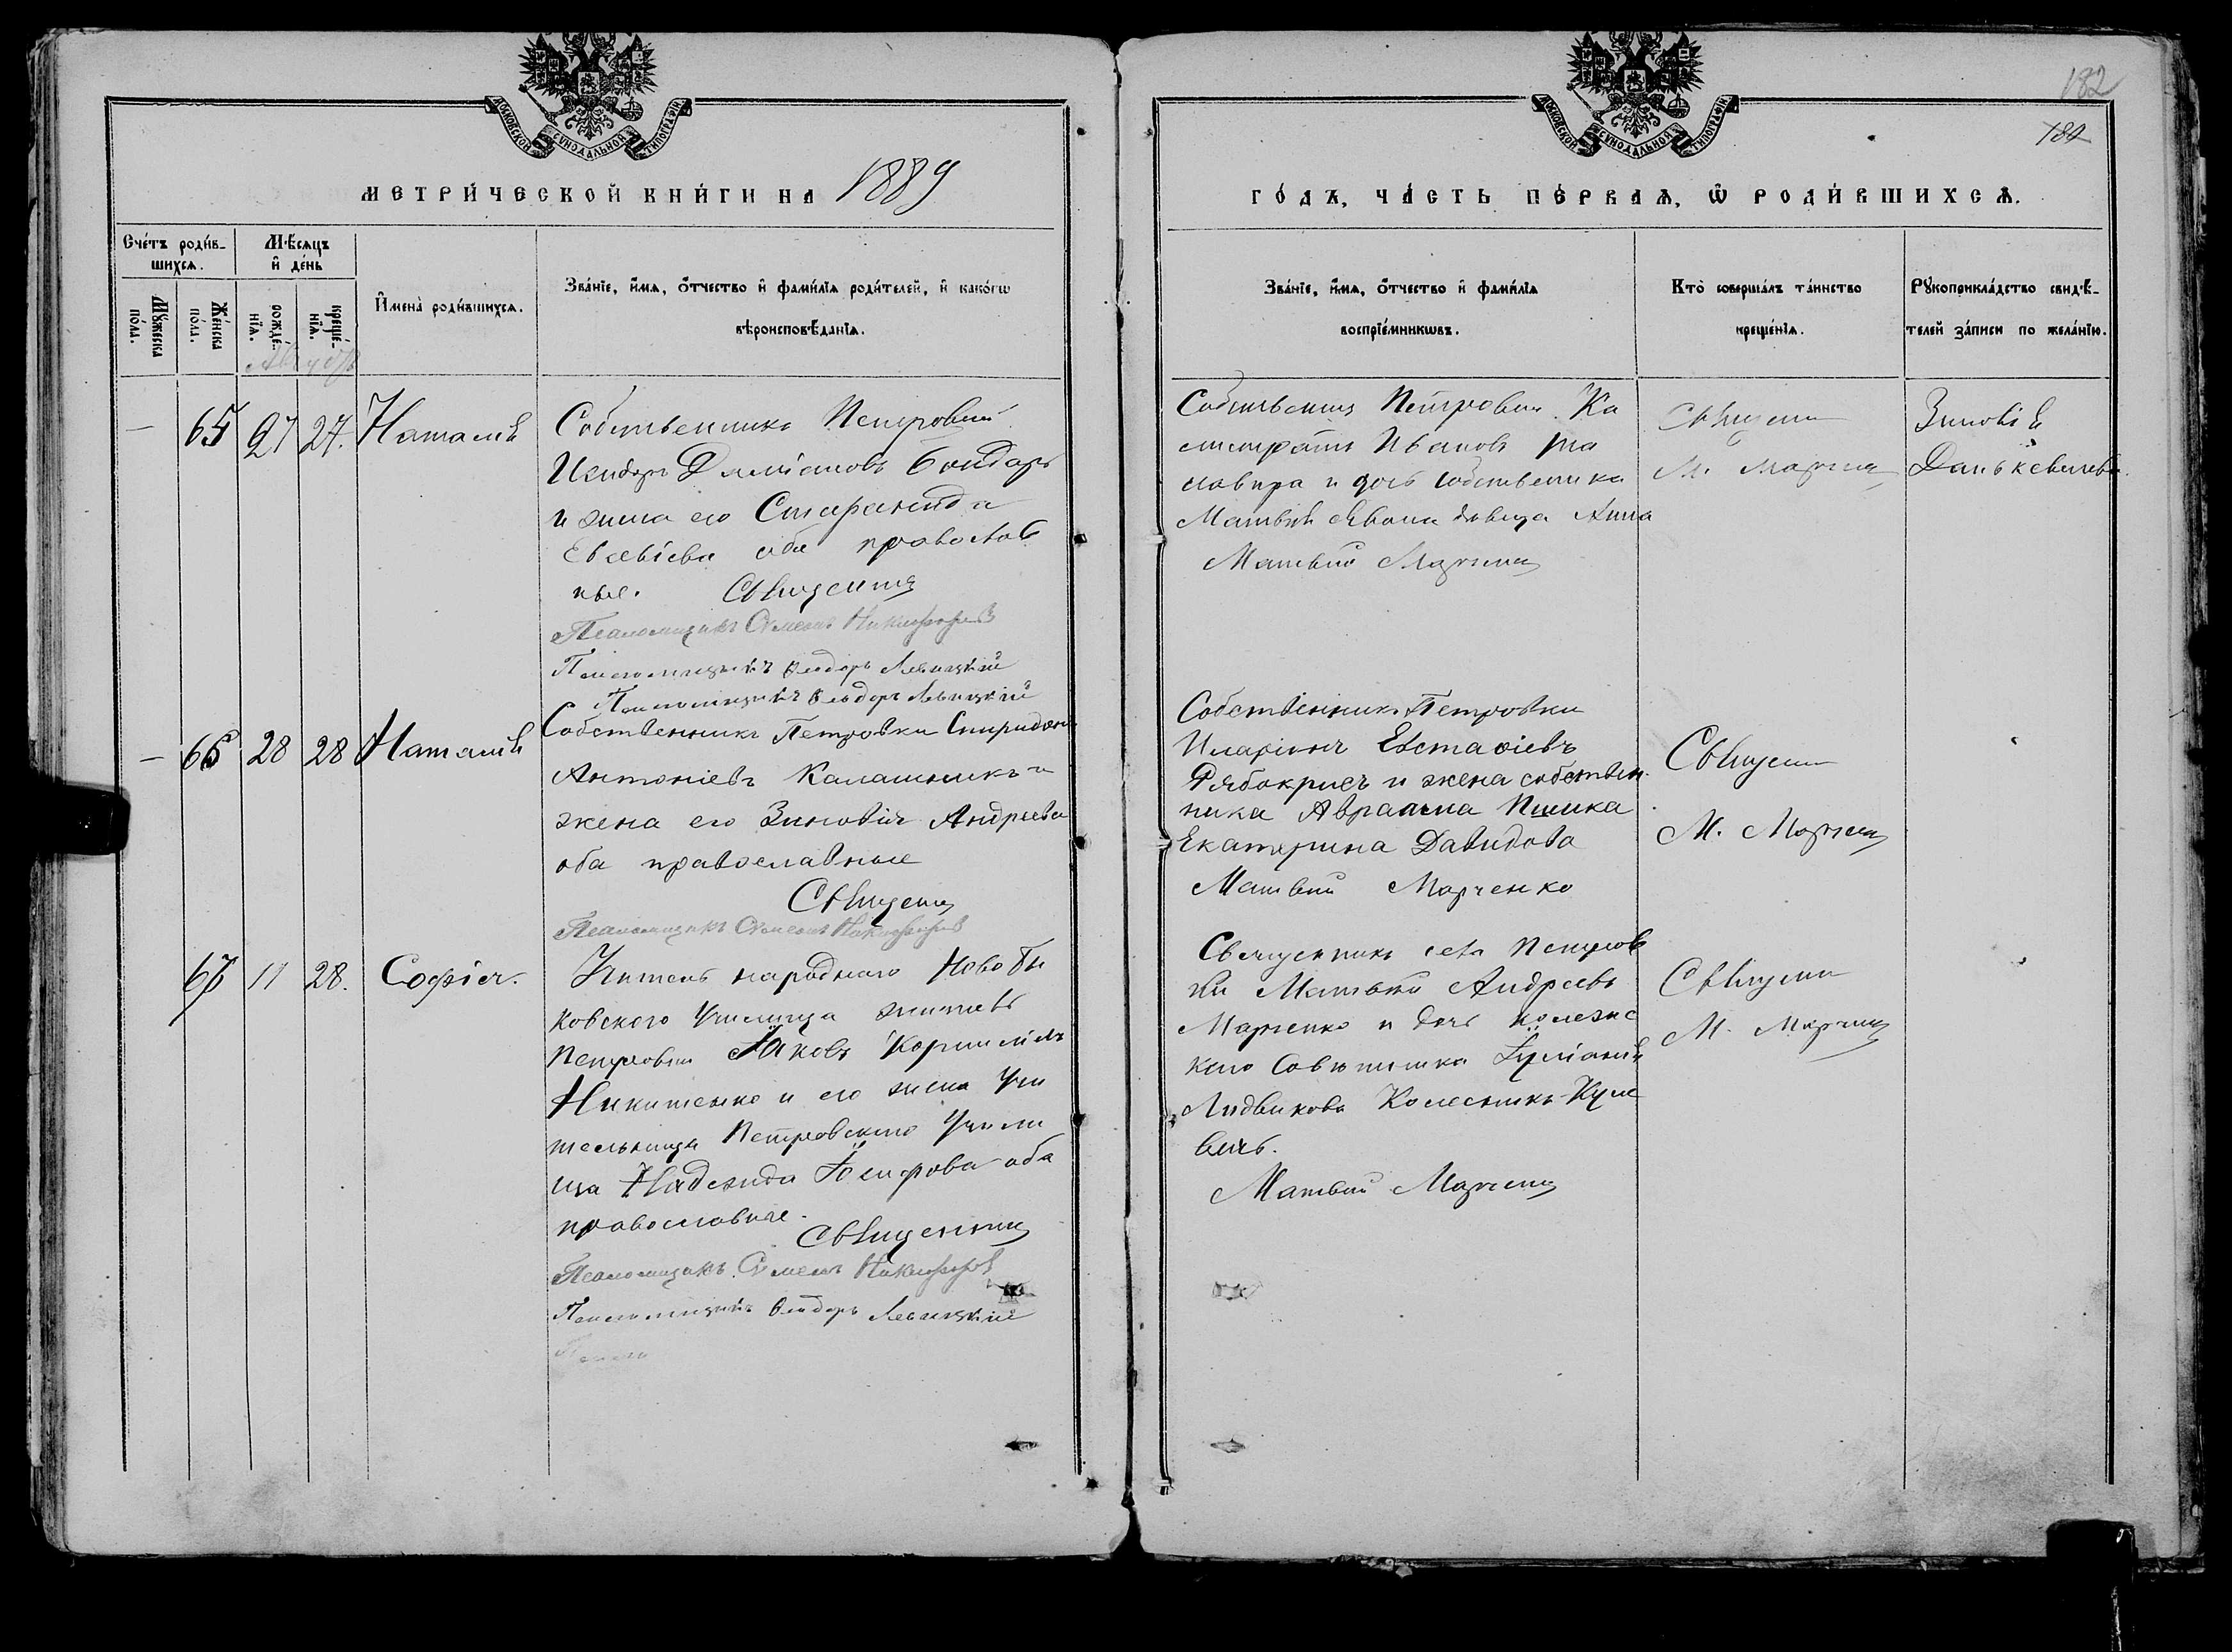 182
182
МОСКОВСКОЙ СѴНОДАЛЬНОЙ ТИПОГРАФІИ
МОСКОВСКОЙ СѴНОДАЛЬНОЙ ТИПОГРАФІИ
МЕТРИ́ЧЕСКОЙ КНИ́ГИ НА 1889
ГО́ДЪ, ЧА́СТЬ ПЕ́РВАѦ, Ѿ РОДИ́ВШИХСѦ.
Сче́тъ роди́в-
шихсѧ.
Мѣ́сѧцъ
и҆ де́нь
Мꙋ́жеска
по́ла.
Же́нска
по́ла.
рожде́-
нїѧ.
креще́-
нїѧ.
Августъ
И҆мена̀ роди́вшихсѧ.
Зва́нїе, и҆́мѧ, ѻ҆́тчество и҆ фами́лїѧ роди́телей, и҆ како́гѡ
вѣроисповѣ́данїѧ.
Зва́нїе, и҆́мѧ, ѻ҆́тчество и҆ фами́лїѧ
воспрїе́мникѡвъ.
Кто̀ соверша́лъ та́инство
креще́нїѧ.
Рꙋкоприкла́дство свидѣ́-
телей за́писи по жела́нїю.
— 65 27 27. Наталія
Собственникъ Петровки
Исидоръ Даміановъ Бондарь
и жена его
Евсевіева оба православ
ные. Священник
Псаломщикъ Симеонъ Никифоровъ
Псаломщикъ Ѳеодоръ Левицкій
Псаломщикъ Ѳеодоръ Левицкій
Собственникъ Петровки Ка
листратъ Ивановъ
и дочь собственника
Матвѣя девица Анна
Матвѣй Марченко
Священник
М. Марченко
Зиновій
Данькевичъ
— 66 28 28 Наталія
Собственникъ Петровки Спиридонъ
Антоніевъ Калашникъ и
жена его Зиновія Андреева
оба православные
Священник
Псаломщикъ Симеонъ Никифоровъ
Собственникъ Петровки
Иларіонъ Евстафіевъ
Рябокрисъ и жена собствен-
ника Авраама Пшика
Екатерина Давидова
Матвѣй Марченко
Священник
М. Марченко
67 11 28. Софія.
Учитель народнаго Ново Бы
ковского Училища житель
Петровки Іаковъ Корнилівъ
Никитенко и его жена Учи
тельница Петровского Учили
ща Надежда оба
православные.
Священник
Псаломщикъ Симеонъ Никифоровъ
Псаломщикъ Ѳеодоръ Левицкій
Священникъ села Петров
ки Матвѣй Андреевъ
Марченко и дочь Колежс
каго Совѣтника Іуліанія
Людвикова Колесникъ-Куле
вичъ.
Матвѣй Марченко
Священник
М. Марченко